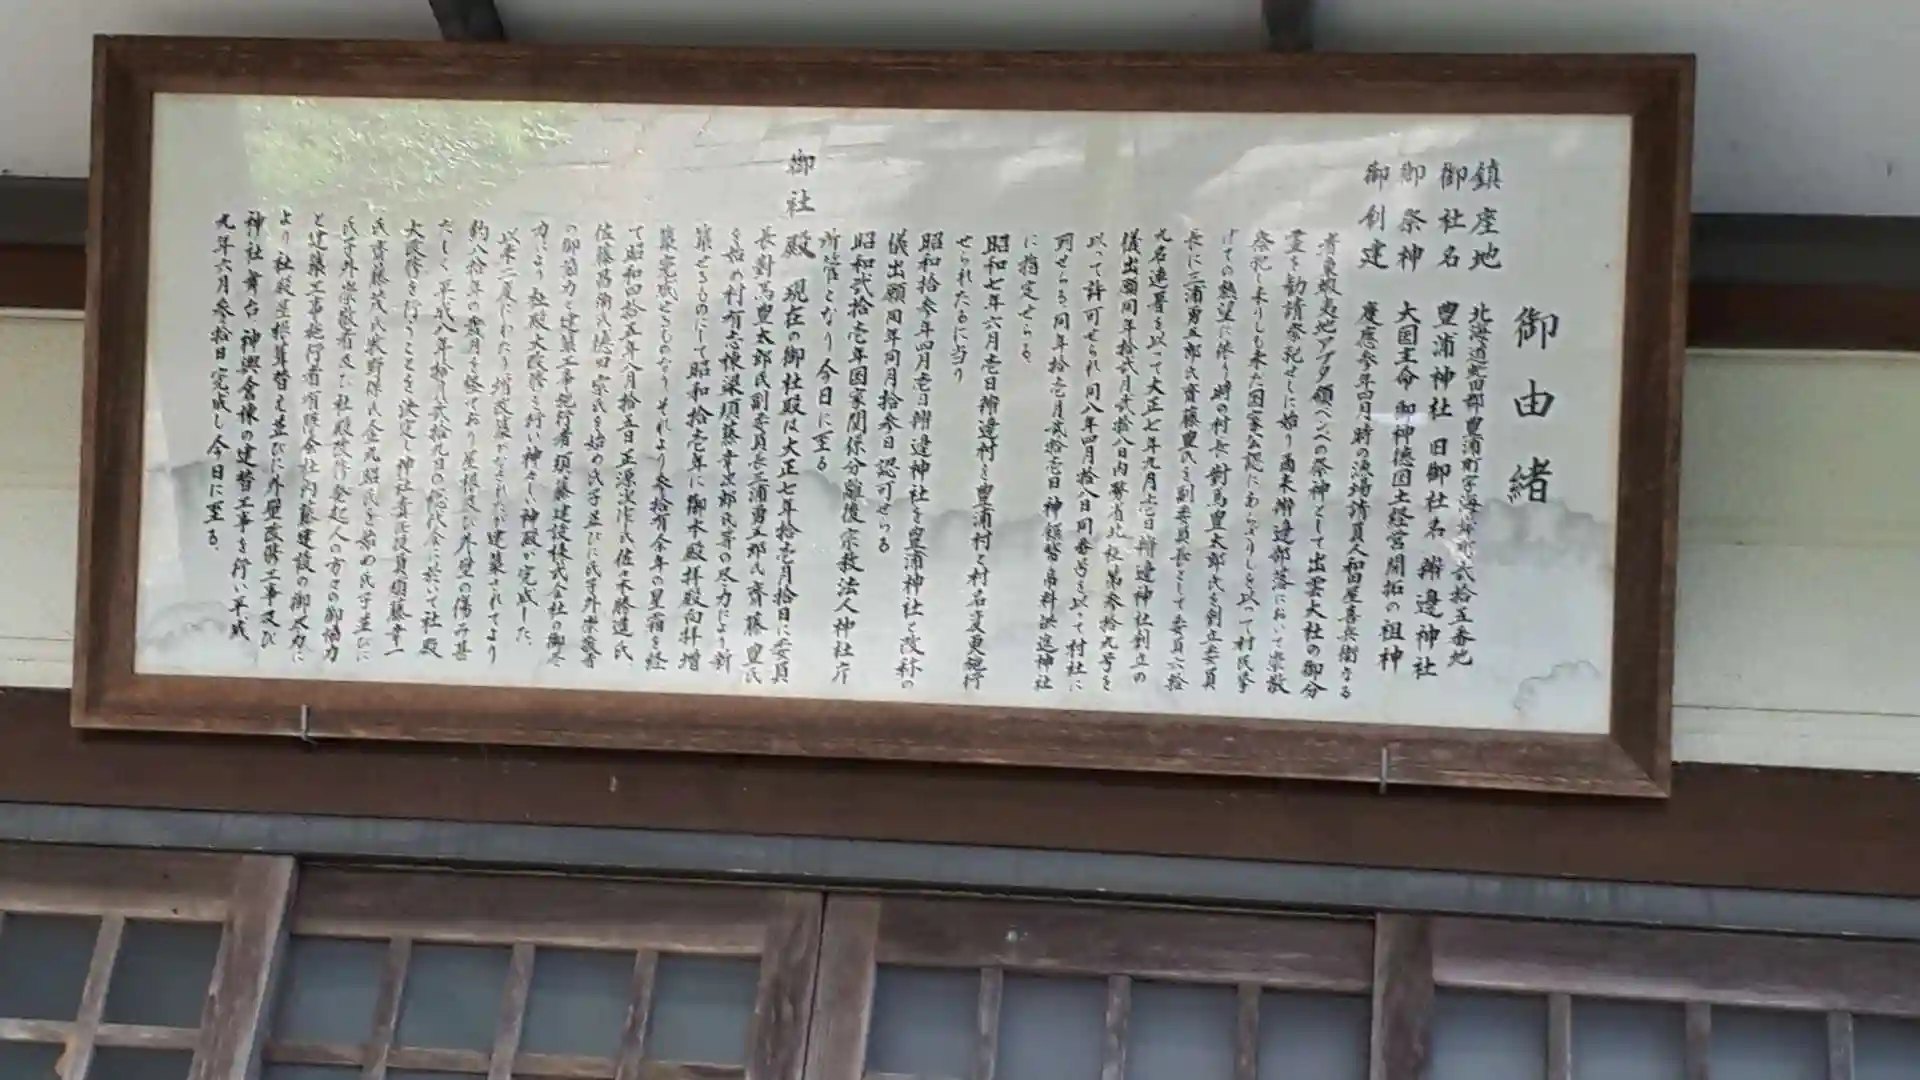 御由緒
鎮座地 北海道虻田郡豊浦町字海岸町弐拾五番地
御社名 豊浦神社 旧御社名 辨邊神社
御祭神 大国主命 御神徳国土経営開拓の祖神
御創建 慶應参年四月時の漁場請負人和田屋喜兵衛なる
者東蝦夷地アブタ領ベンベの祭神として出雲大社の御分
霊を勧請祭祀せしに始り爾来辨邊部落において崇敬
祭祀し来りしも未だ国家公認にあらざりしを以って村民挙
げての熱望に依り時の村長對馬豊太郎氏を創立委員
長に三浦勇五郎氏齊藤豊氏を副委員長として委員六拾
九名連署を以って大正七年九月壱日辨邊神社創立の
儀出願同年拾弐月弐拾八日内務省北社第参拾九号を
以って許可せられ同八年四月拾八日同番号を以って村社に
列せらる同年拾壱月弐拾壱日神饌幣帛料供進神社
に指定せらる
昭和七年六月壱日辨邊村を豊浦村と村名変更施行
せられたるに当り
昭和拾参年四月壱日辨邊神社を豊浦神社と改称の
儀出願同年同月拾参日認可せらる
昭和弐拾壱年国家関係分離後宗教法人神社庁
所管となり今日に至る
御社殿 現在の御社殿は大正七年拾壱月拾日に委員
長對馬豊太郎氏副委員長三浦勇五郎氏齊藤豊氏
を始め村有志棟梁須藤幸次郎氏等の尽力により新
築せるものにして昭和拾壱年に御本殿拝殿向拝増
築完成せさものなりそれより参拾有余年の星霜を経
て昭和四拾五年八月拾五日正源次作氏佐々木勝道氏
佐藤昌衛氏徳田宗氏を始め氏子並びに氏子外崇敬者
の御協力と建築工事施行者須藤建設株式会社の御尽
力により社殿大改修を行い神々しい神殿が完成した
以来二度にわたり増改築がなされたが建築されてより
約八拾年の歳月を経ており屋根及び外壁の傷み甚
だしく平成八年拾月弐拾九日の総代会に於いて社殿
大改修を行うことを決定し神社責任役員須藤幸一
氏齊藤茂氏牧野保氏金丸昭氏を始め氏子並びに
氏子外崇敬者及び社殿改修発起人の方々の御協力
と建築工事施行者有限会社内藤建設の御尽力に
より社殿屋根葺替え並びに外壁改修工事及び
神社舞台神輿倉棟の建替工事を行い平成
九年六月参拾日完成し今日に至る